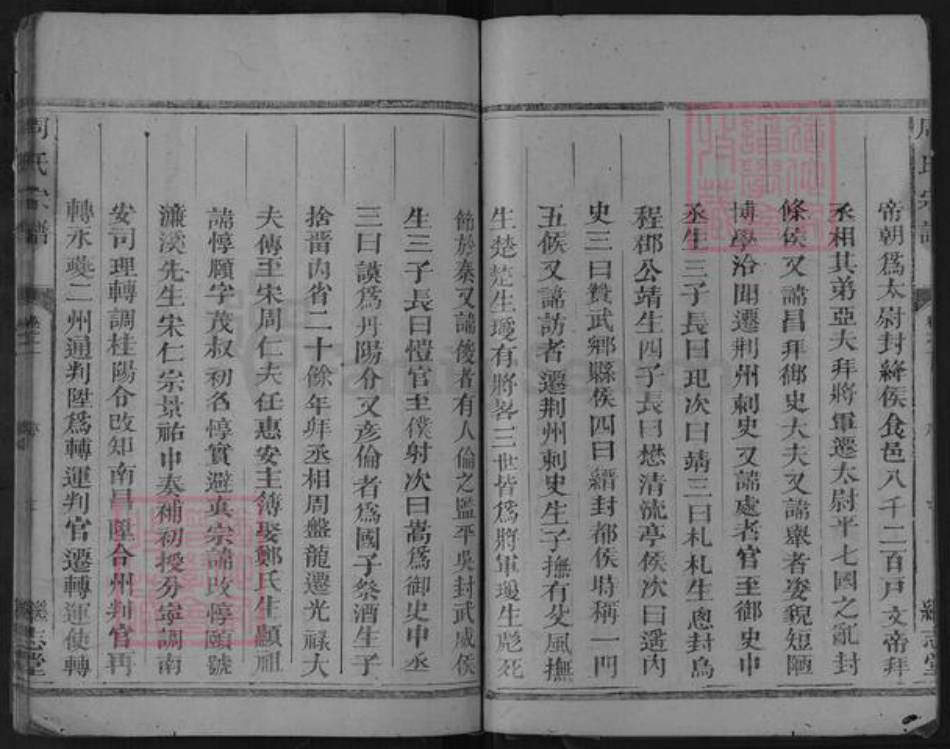 周氏宗譜
繼志堂
帝朝爲太尉封絳侯食邑八千二百戶文帝拜
丞相其弟亞夫拜將軍遷太尉平七國之亂封
條侯又諱昌拜御史大夫又諱舉者姿貌短陋
博學洽聞遷荆州刺史又諱處者官至御史中
丞生三子長曰玘次曰靖三曰札札生𢡟封烏
程郡公靖生四子長曰懋清流亭侯次曰遙内
史三曰贊武鄉縣侯四曰縉封都侯時稱一門
五候又諱訪者遷荆州刺史生子撫有父風撫
生楚楚生瓊有將畧三世皆爲將軍瓊生彪死
節於秦又諱俊者有人倫之監平吳封武威侯
生三子長曰愷官至僕射次曰嵩爲御史中丞
三曰謨爲丹陽令又彥倫者爲國子祭酒生子
捨晋内省二十餘年拜丞相周盤龍遷光祿大
夫傳至宋周仁夫任惠安主簿娶鄭氏生顯祖
諱惇願字茂叔初名惇實避英宗諱改惇頤號
濂溪先生宋仁宗景祐中奏補初授分寧調南
安司理轉調桂陽令改知南昌陞合州判官再
轉永䕫二州通判陞爲轉運判官遷轉運使轉
周氏宗譜
繼志堂